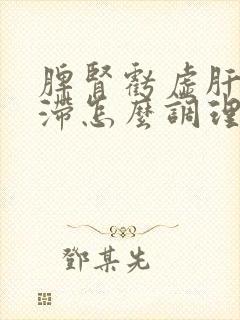 脾腎虧虛肝
滯怎麼調理
鄧某先